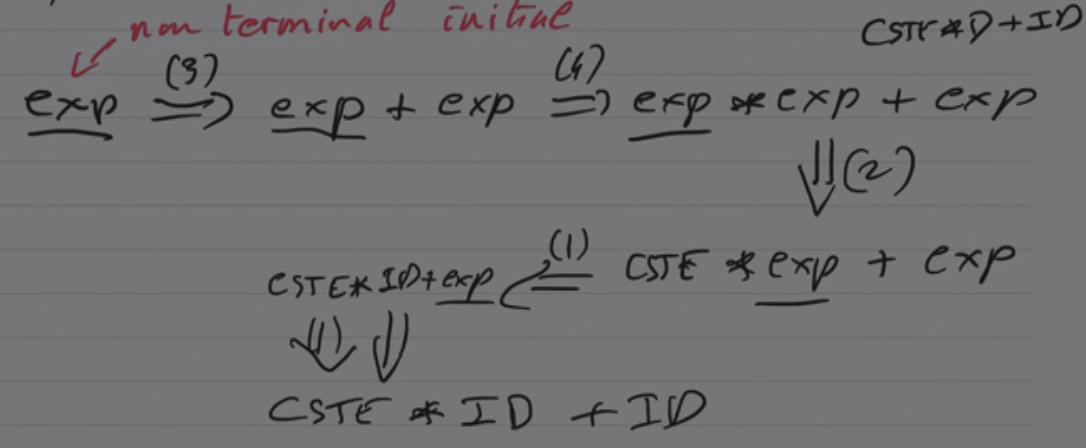 non terminal initial
CSTE*D+ID
(3) (4)
exp ⇒ exp + exp ⇒ exp * exp + exp
⇓ (2)
(1)
CSTE*ID+exp ⇐ CSTE * exp + exp
(1) ⇓
CSTE * ID + ID